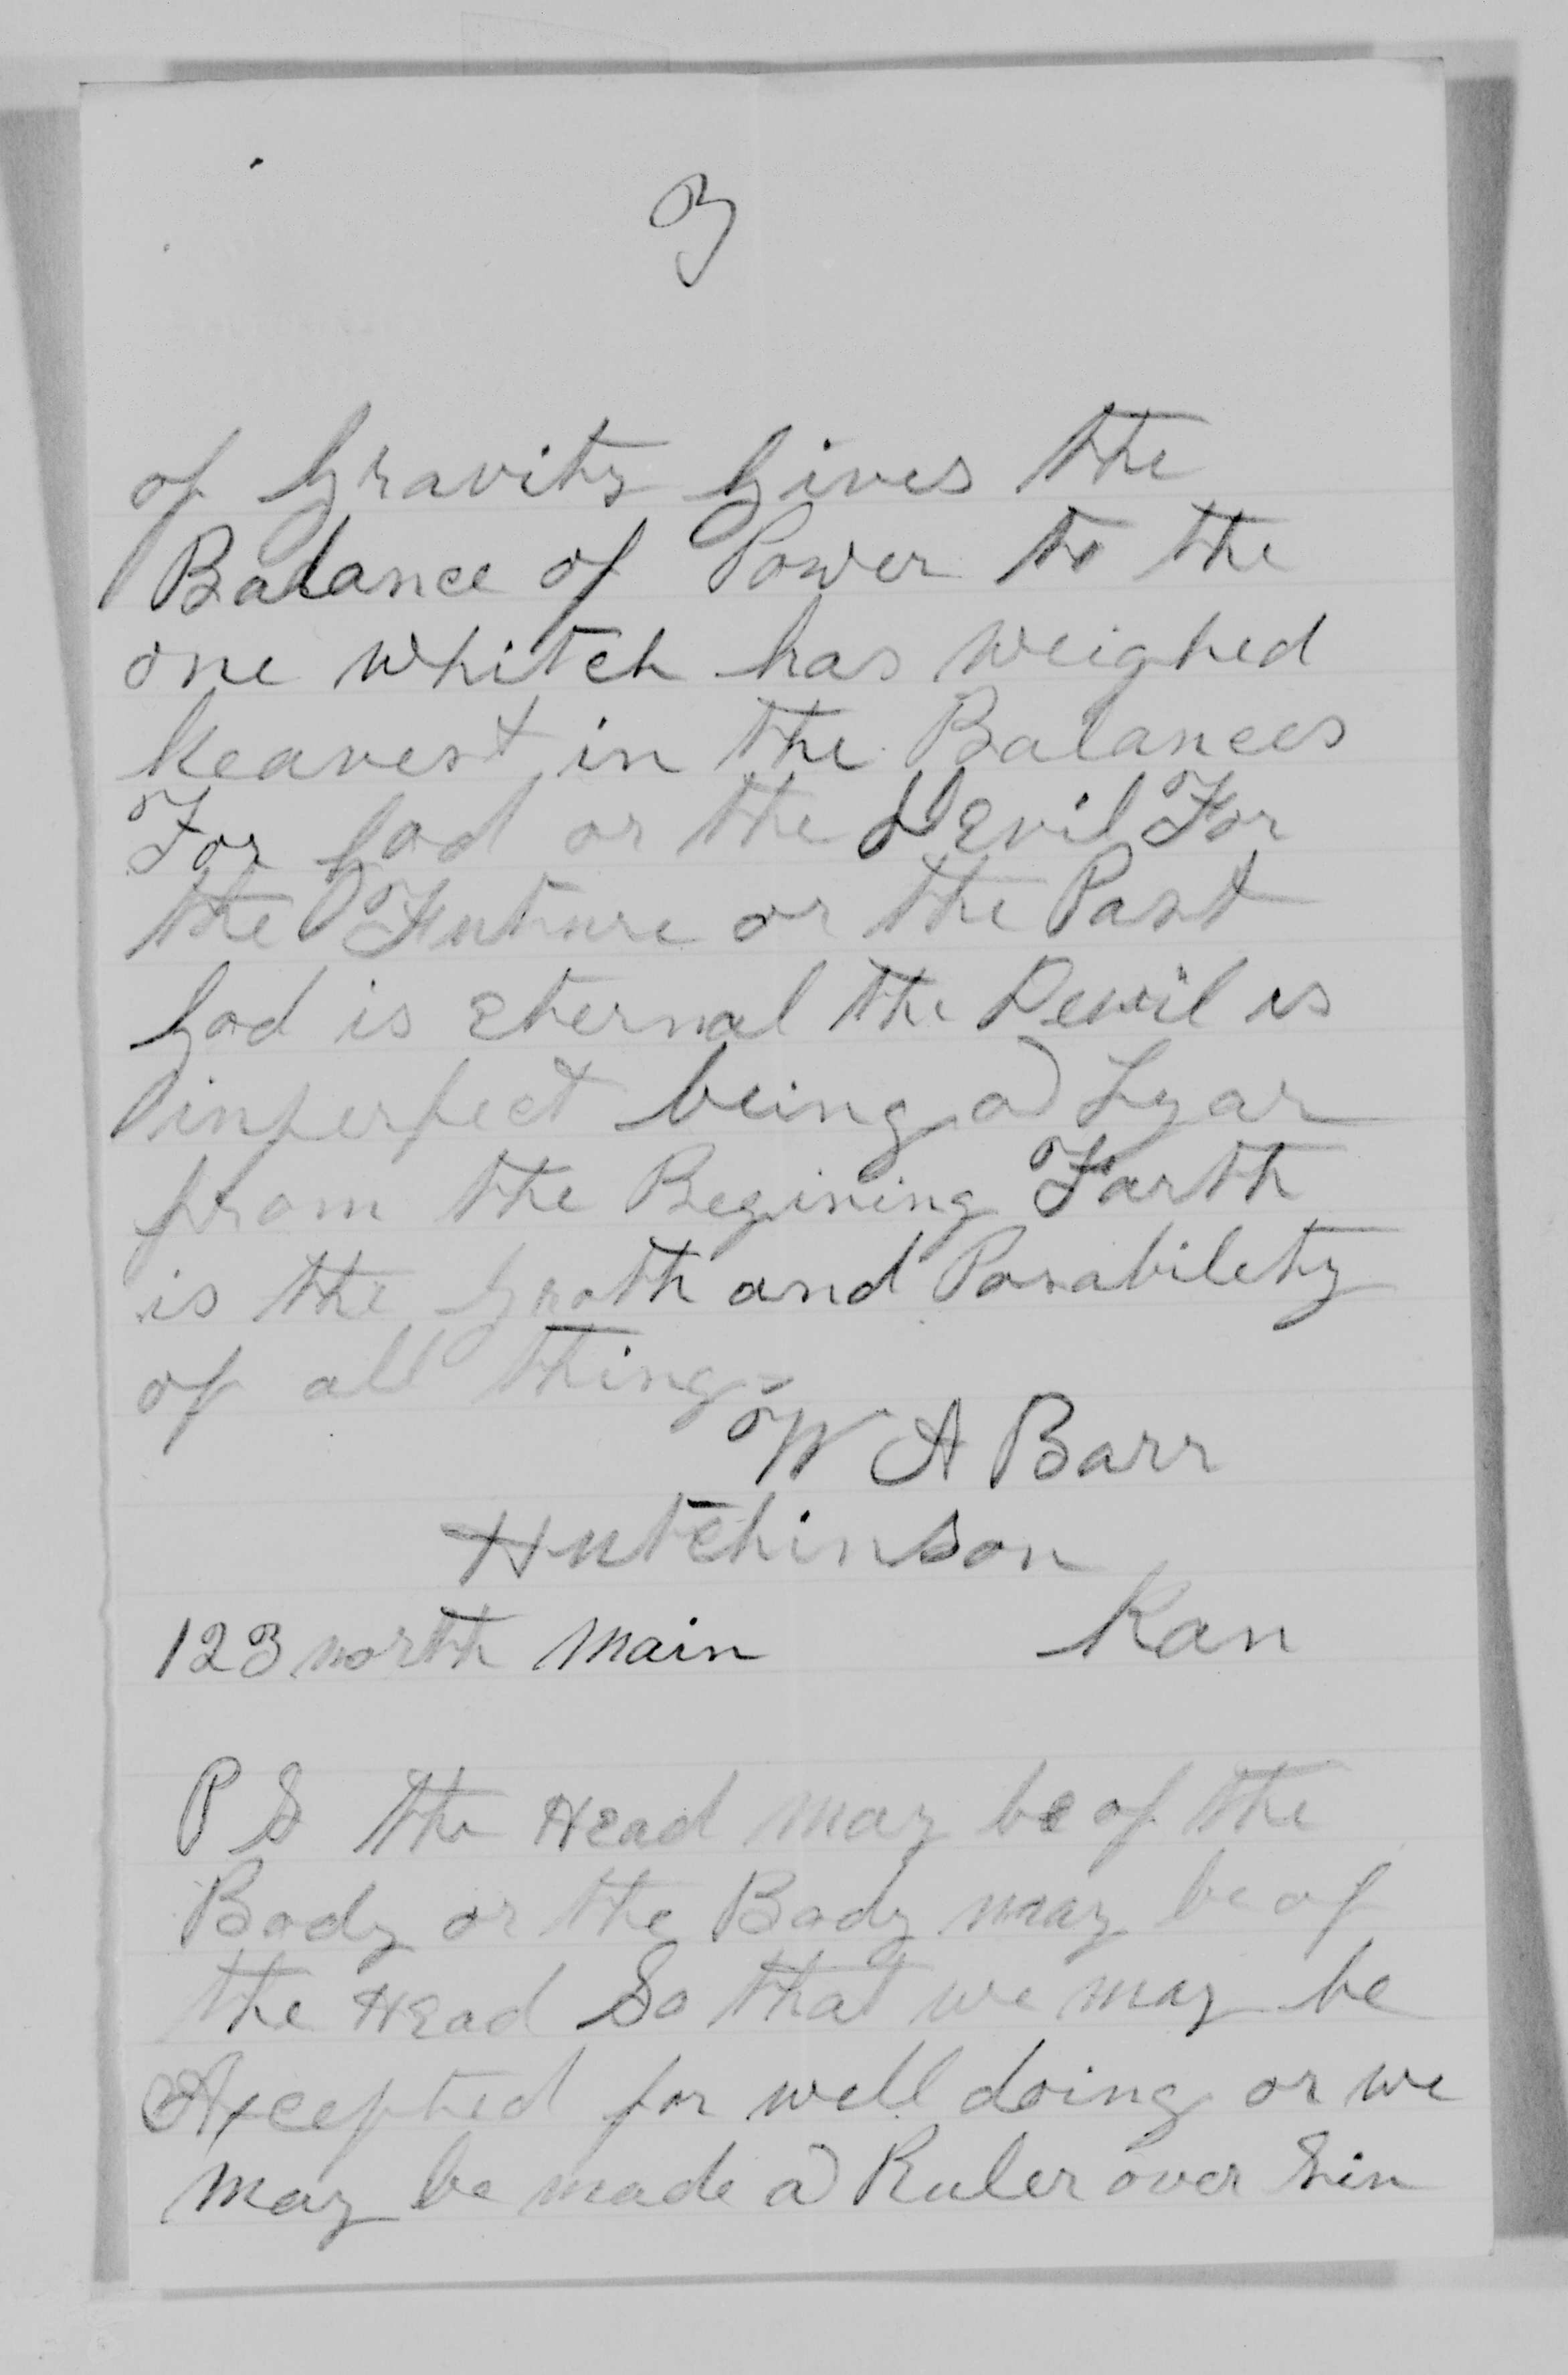 3
of Gravity Gives the
Balance of Power to the
one whitch has weighed
heavest in the Balances
For God or the Devil For
the Future or the Past
God is Eternal the Devil is
inperfect being a Lyar
from the Begining Farth
is the Groth and Posability
of all things
W A Barr
Hutchinson
123 north Main Kan
P S the Head may be of the
Body or the Body may be of
the Head So that we may be
Axcepted for well doing or we
may be made a Ruler over Sin